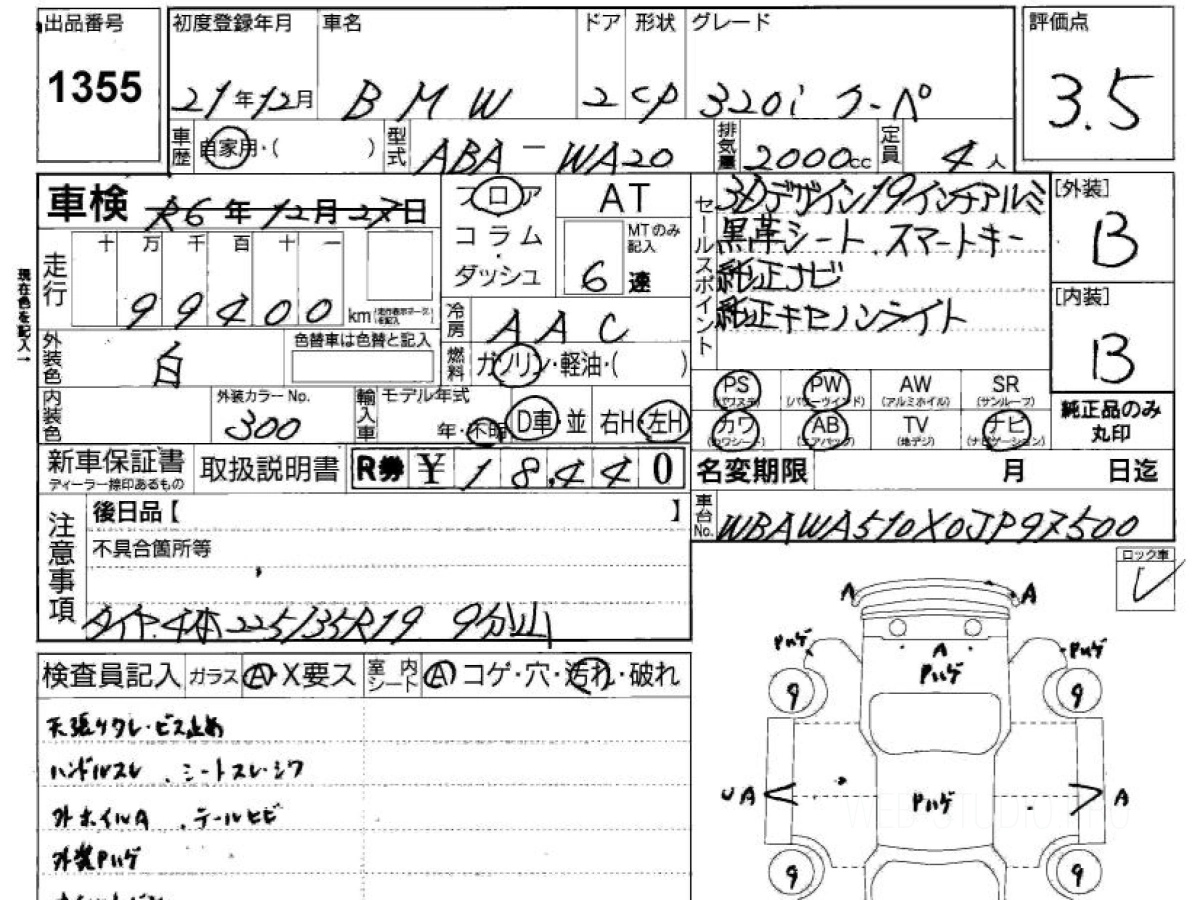 出品番号 初度登録年月 車名 ドア 形状 グレード 評価点
1355 21年12月 BMW 2 cp 320i クーペ 3.5
車歴 自家用・( ) 型式 ABA-WA20 排気量 2000cc 定員 4人
車検 R6年12月27日 フロア コラム・ダッシュ AT MTのみ記入 6速
セールスポイント 3Dデザイン19インチアルミ
黒革シート.スマートキー
純正ナビ
純正キセノンライト
[外装] B
[内装] B
現在色を記入→
走行 十万千百十一
99400 km
冷房 AAC
外装色 白 色替車は色替と記入
燃料 ガソリン・軽油・( )
内装色 外装カラーNo. 300 輸入車 モデル年式 年・不明 D車・並 右H・左H
PS (パワステ) PW (パワーウインド) AW (アルミホイル) SR (サンルーフ)
カワ (カワシート) AB (エアバック) TV (地デジ) ナビ (ナビゲーション)
純正品のみ丸印
新車保証書 ディーラー捺印あるもの 取扱説明書 R券 ¥18,440
名変期限 月 日迄
注意事項 後日品【 】
車台No. WBAWA510X0JP97500
不具合箇所等
タイヤ.4本225/35R19 9分山
ロック車 レ
検査員記入 ガラス A・X要ス 室内シート A コゲ・穴・汚れ・破れ
天張リタレ・ビス止め
ハンドルスレ.シートスレ・シワ
外ホイルA.テールヒビ
外装Pハゲ
A A
Pハゲ A Pハゲ
Pハゲ
9 9
UA Pハゲ A
9 9
WEB STUDIO.PO